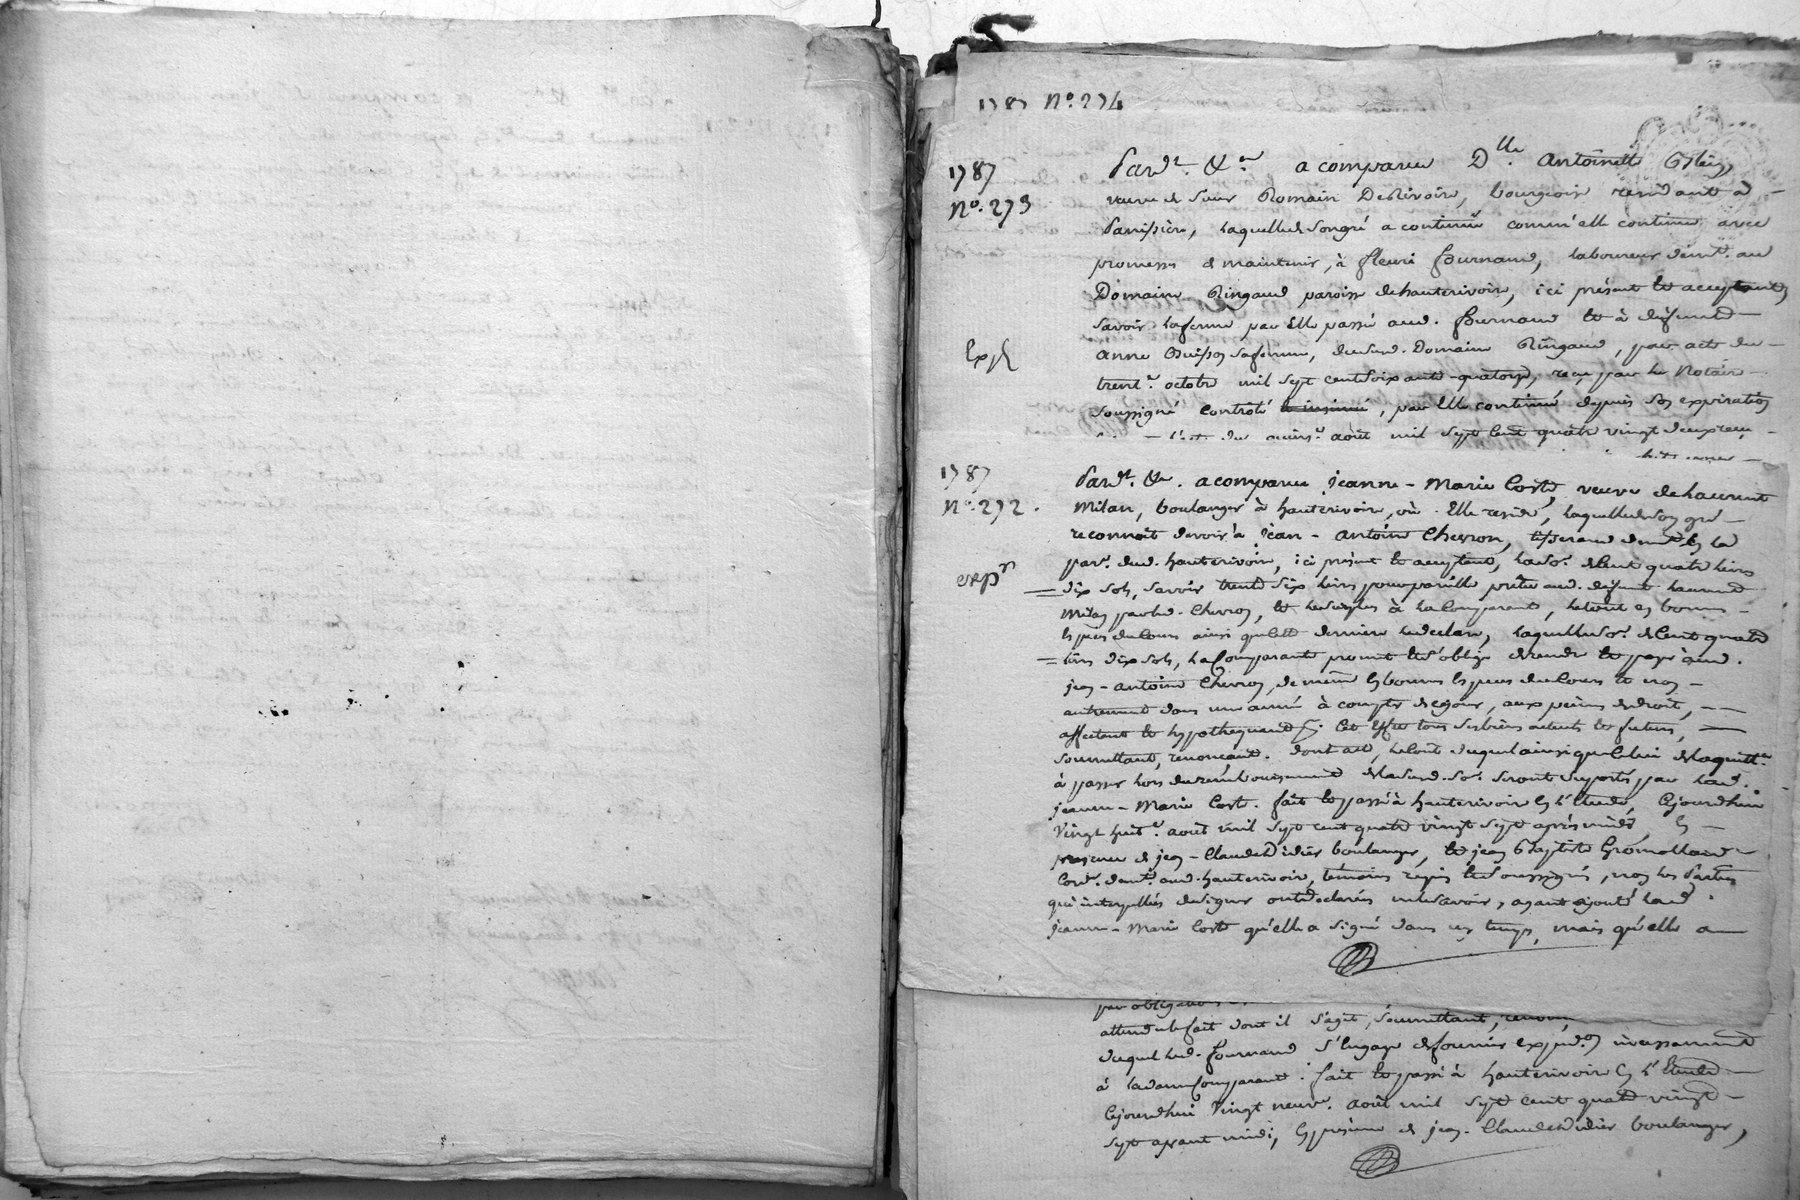 1787 N.° 274
1787
N.° 273
Pard.t &.a a comparu D.lle Antoinette
veuve de sieur Romain DeRivoire, bourgeois residante à
Panissière, laquelle de son gré a continué comm'elle continue avec
promesse de maintenir, à fleuri fournand, laboureur dem.t au
Domaine Ringaud paroisse de hauterivoire, ici présent et acceptant,
savoir la ferme par Elle passé aud. fournand et à deffunte
anne Buisson sa femme, dud. Domaine Ringaud, par acte du
trent.e octobre mil sept cent soixante-quatorze, reçu par le Notaire
Expé
soussigné controlé et insinué, par Elle continué depuis son expiration
août mil sept cent quatre vingt
huit
1787
N.° 272.
Pard.t &.a a comparu jeanne-Marie Coste, veuve de Laurent
Milan, boulanger à hauterivoire, où Elle reside, laquelle de son gré
reconnoît devoir à jean-antoine Chevron, tisserand dem.t en la
par.se dud. hauterivoire, ici présent et acceptant, la so.e de Cent quatre livres
exp.on
dix sols, savoir trente six livres pour pareille prêtée aud. deffunt Laurent
Milan par led. Chevron, et le surplus à la Comparante, le tout en bonnes
Especes du Cours ainsi que cette derniere le declare, laquelle so.e de Cent quatre
livres dix sols, la Comparante promet et s'oblige de rendre et payer aud.
jean-antoine Chevron, de même en bonnes Especes du Cours et non
autrement dans une année à compter de ce jour, aux peines de droit,
affectant et hypothequant à Cet Effet tous ses biens actuels et futurs,
soumettant, renonçant. Dont acte, le Coût duquel ainsi que Celui de la quitt.ce
à passer lors du remboursement de lasusd. so.e seront suportés par lad.
jeanne-Marie Coste. fait et passé à hauterivoire En l'Etude, Cejourd'hui
Vingt huit.e août mil sept cent quatre vingt sept après midi, En
presence de jean-Claude Didier boulanger, et jean Baptiste Gromolard
Cord.r dem.t aud. hauterivoire, temoins requis et soussignés, non les Parties
qui interpellées de signer ont declarées ne le savoir, ayant ajouté lad.
jeanne-Marie Coste qu'elle a signé dans un temps, mais qu'elle a
par obligation
attendu le fait dont il s'agit, soumettant,
duquel led. fournand s'engage de fournir expéd.on incessamment
à la dame Comparante. fait et passé à hauterivoire En l'Etude
Cejourd'hui Vingt neuv.e août mil sept cent quatre vingt
sept avant midi, En présence de jean-Claude Didier boulanger,